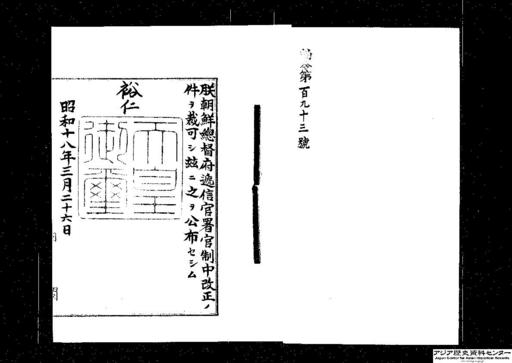 勅令第百九十三號
朕朝鮮總督府遞信官署官制中改正ノ
件ヲ裁可シ玆ニ之ヲ公布セシム
裕仁
天皇
御璽
昭和十八年三月二十六日
アジア歴史資料センター
Japan Center for Asian Historical Records